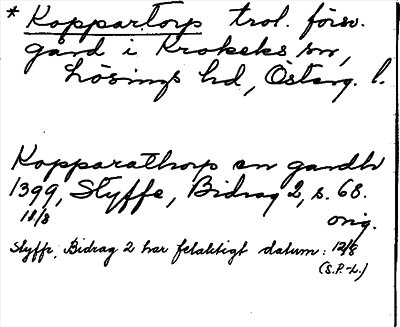 * Koppartorp trol. försv.
gård i Krokeks sn,
Lösings hd, Österg. l.
Kopparathorp en gardh
1399, Styffe, Bidrag 2, s. 68.
18/8 orig.
Styffe, Bidrag 2 har felaktigt datum: 12/8
(S.P.-L.)